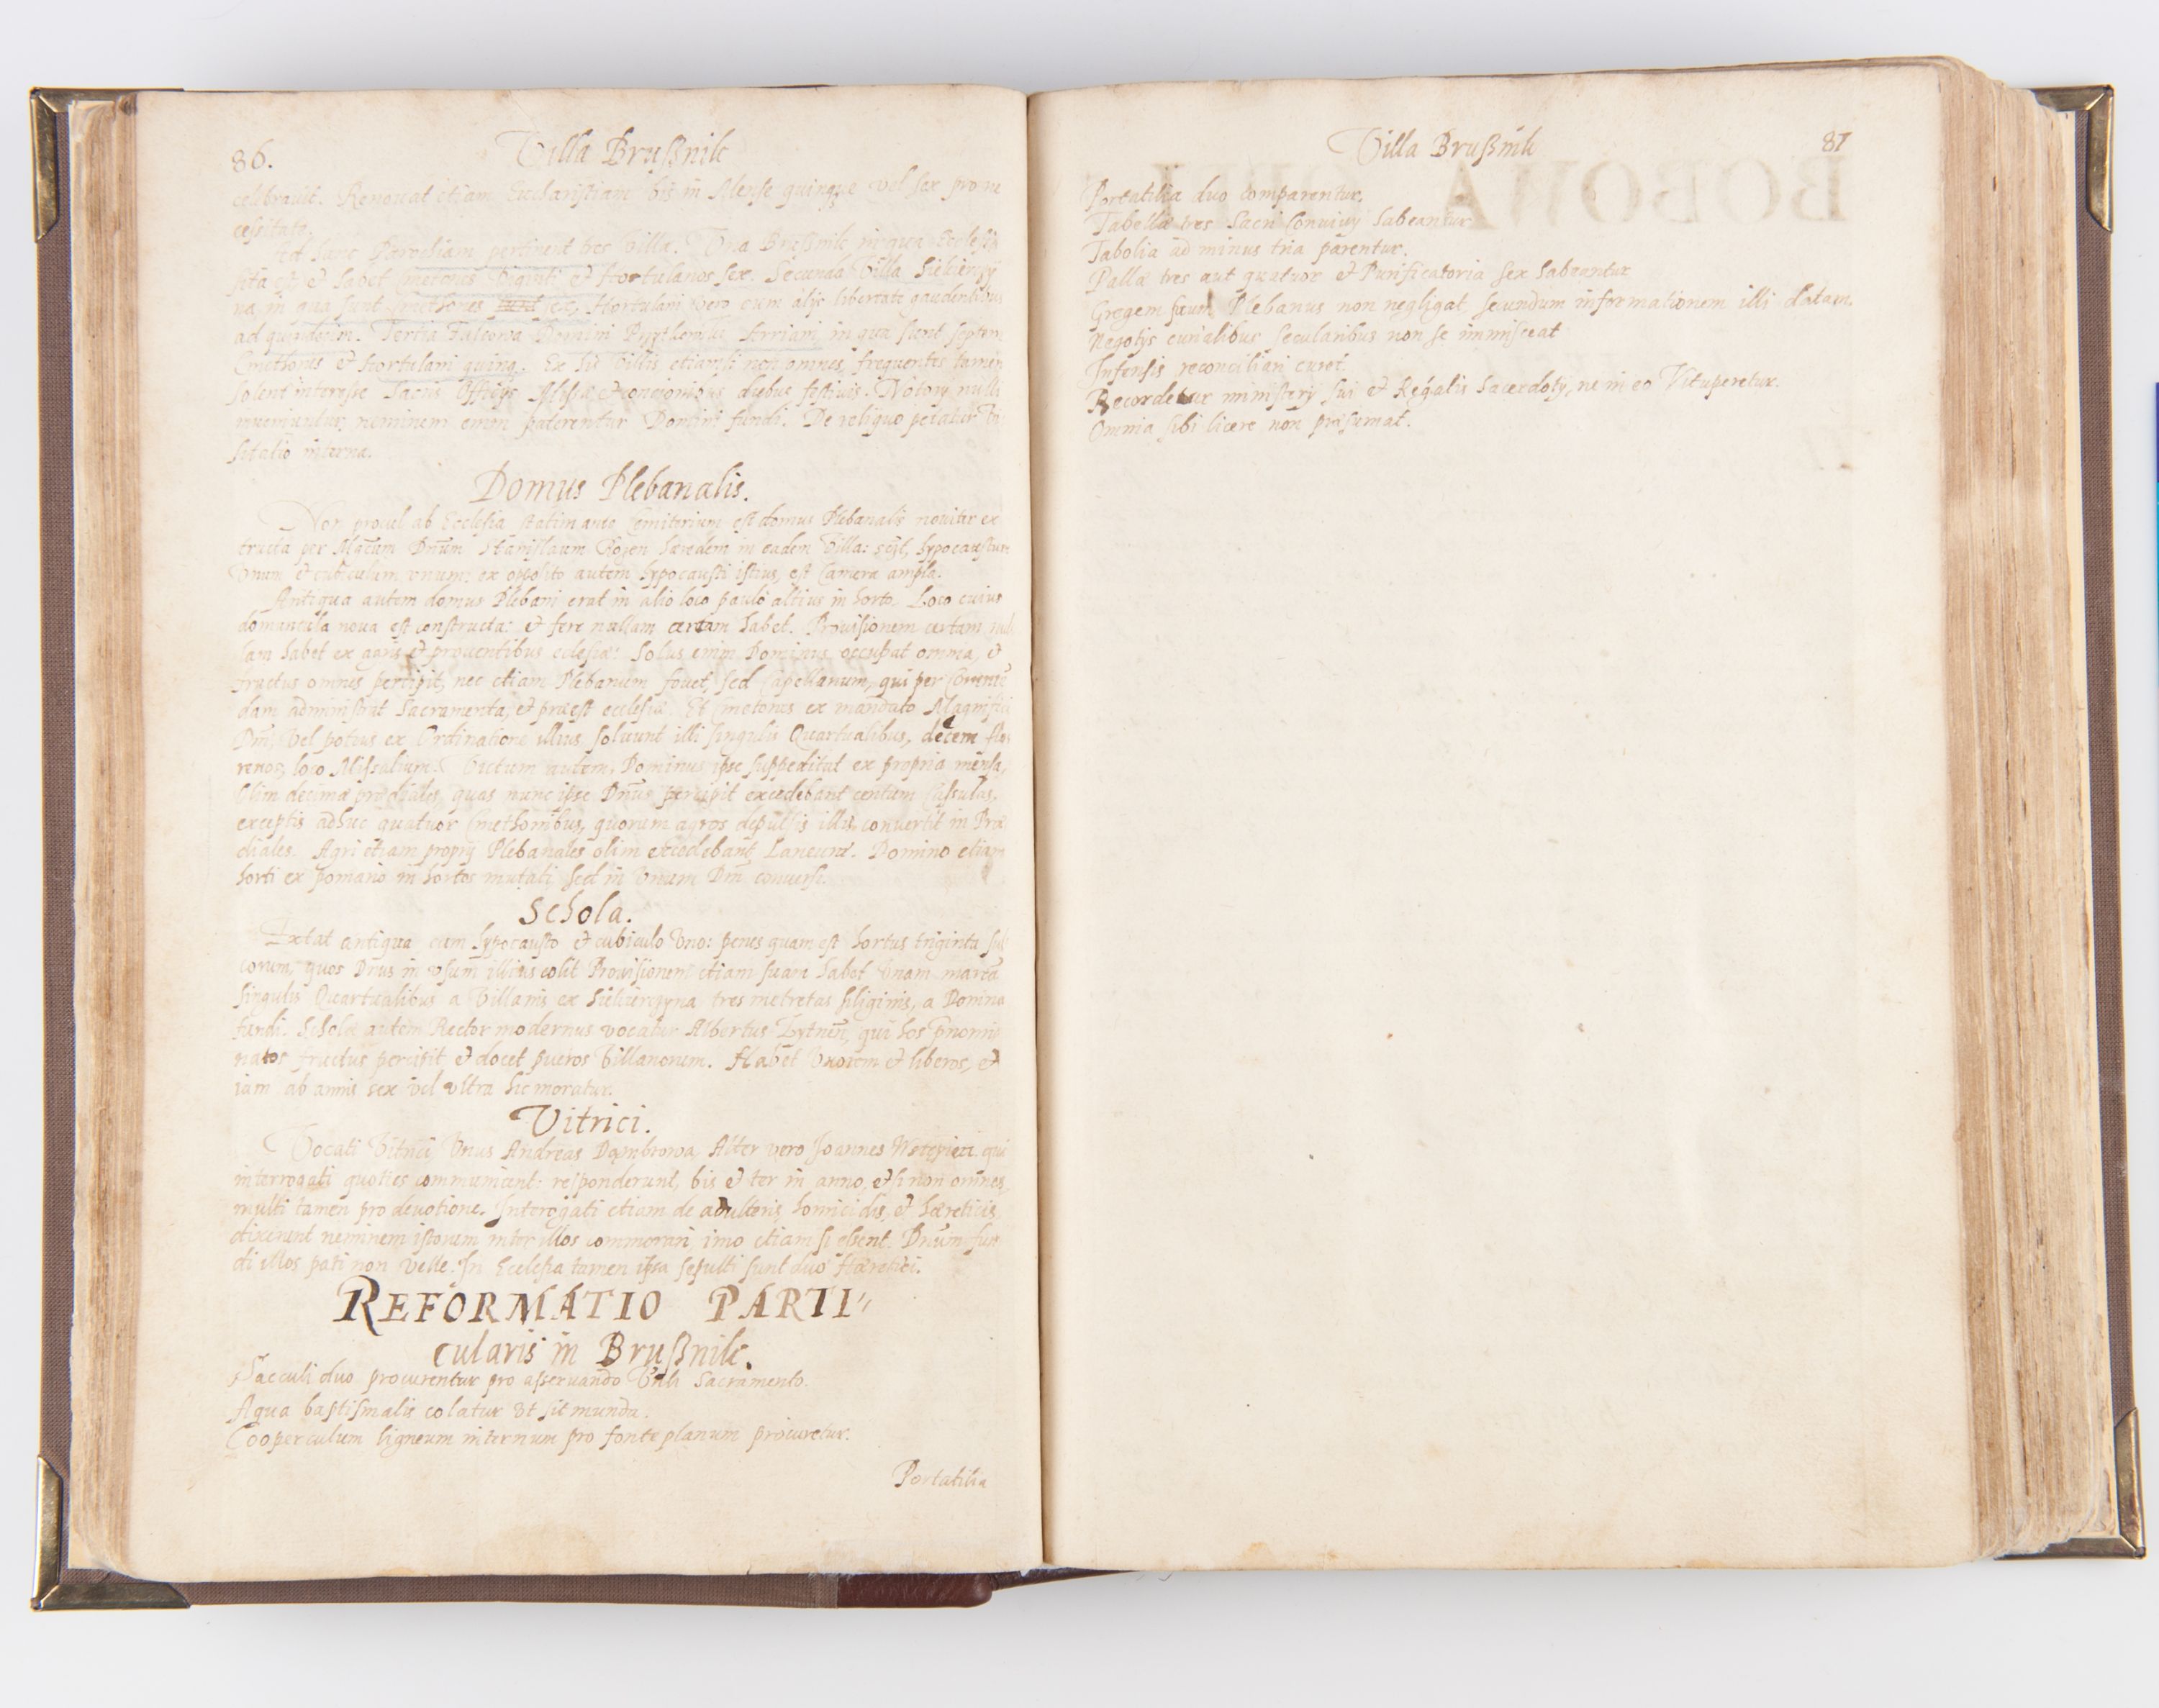 86.
Villa Brußnik
celebrauit. Renouat etiam Eucharistiam bis in Mense quinque vel sex pro ne
cessitate.
Ad hanc Parochiam pertinent tres Villæ. Una Brußnik in qua Ecclesia
sita est et habet cmetones viginti et Hortulanos sex. Secunda Villa
in qua sunt Cmethones sex, Hortulani vero cum alijs libertate gaudentibus
ad quindecim. Tertia Falsowa Domini Arriani, in qua sunt septem
Cmethones et Hortulani quinq. Ex his Villis etiamsi non omnes, frequentes tamen
solent interesse Sacris Officijs Missæ et concionibus diebus festiuis. Notorij nulli
inueniuntur, neminem enim paterentur Domini fundi. De reliquo petatur Vi
sitatio interna.
Domus Plebanalis.
Non procul ab Ecclesia statim ante Cemiterium est domus Plebanalis nouiter ex
tructa per Magcum Dnum Stanislaum Rożen hæredem in eadem Villa: scil, hypocaustum
Vnum et cubiculum vnum: ex opposito autem hypocausti istius, est Camera ampla.
Antiqua autem domus Plebani erat in alio loco paulo altius in horto. Loco cuius
domuncula noua est constructa: et fere nullam certam habet. Prouisionem certam nul
lam habet ex agris et prouentibus ecclesiæ: Solus enim Dominus occupat omnia, et
fructus omnes percipit, nec etiam Plebanum fouet, sed Capellanum, qui per Commen
dam administrat Sacramenta, et præest ecclesiæ. Et Cmetones ex mandato Magnifici
Dni, Vel potius ex Ordinatione illius soluunt illi singulis Quartualibus, decem flo
renos, loco Missalium. Victum autem, Dominus ipse suppeditat ex propria mensa,
Olim decimæ prædiales, quas nunc ipse Dnus percipit excedebant centum Cassulas,
exceptis adhuc quatuor Cmethonibus, quorum agros depulsis illis, conuertit in Præ
diales. Agri etiam proprij Plebanales olim excedebant Laneum. Domino etiam
horti ex pomario in hortos mutati sed in Vnum Dni conuersi.
Schola.
Extat antiqua cum hypocausto et cubiculo Vno: penes quam est hortus triginta sul
corum, quos Dnus in vsum illius colit Prouisionem etiam suam habet Vnam marcã
singulis Quartualibus a Villanis ex tres metretas siliginis, a Domino
fundi. Scholæ autem Rector modernus vocatur Albertus qui hos
natos fructus percipit et docet pueros Villanorum. Habet Vxorem et liberos, et
iam ab annis sex vel vltra hic moratur.
Vitrici.
Vocati Vitrici Vnus Andreas Dąmbrowa Alter vero Joannes qui
interrogati quoties communicent: responderunt, bis et ter in anno, etsi non omnes,
multi tamen pro deuotione. Interogati etiam de adulteris, homicidis, et hæreticis,
dixerunt neminem istorum inter illos commorari imo etiam si essent. Dnum fun
di illos pati non velle. In Ecclesia tamen ipsa sepulti sunt duo Hæretici.
REFORMATIO PARTI"
cularis in Brußnik.
Sacculi duo procurentur pro asseruando Vnli Sacramento.
Aqua baptismalis colatur vt sit munda.
Cooperculum ligneum internum pro fonte planum procuretur.
Portatilia
Villa Brußnik
87
Portatilia duo comparentur.
Tabellæ tres Sacri Conuiuij habeantur
Tabolia ad minus tria parentur.
Pallæ tres aut quatuor et Purificatoria sex habeantur
Gregem suum Plebanus non negligat, secundum informationem illi datam.
Negotijs curialibus secularibus non se immisceat
Infensis reconciliari curet.
Recordetur ministerij sui et Regalis Sacerdotij, ne in eo Vituperetur.
Omnia sibi licere non præsumat.